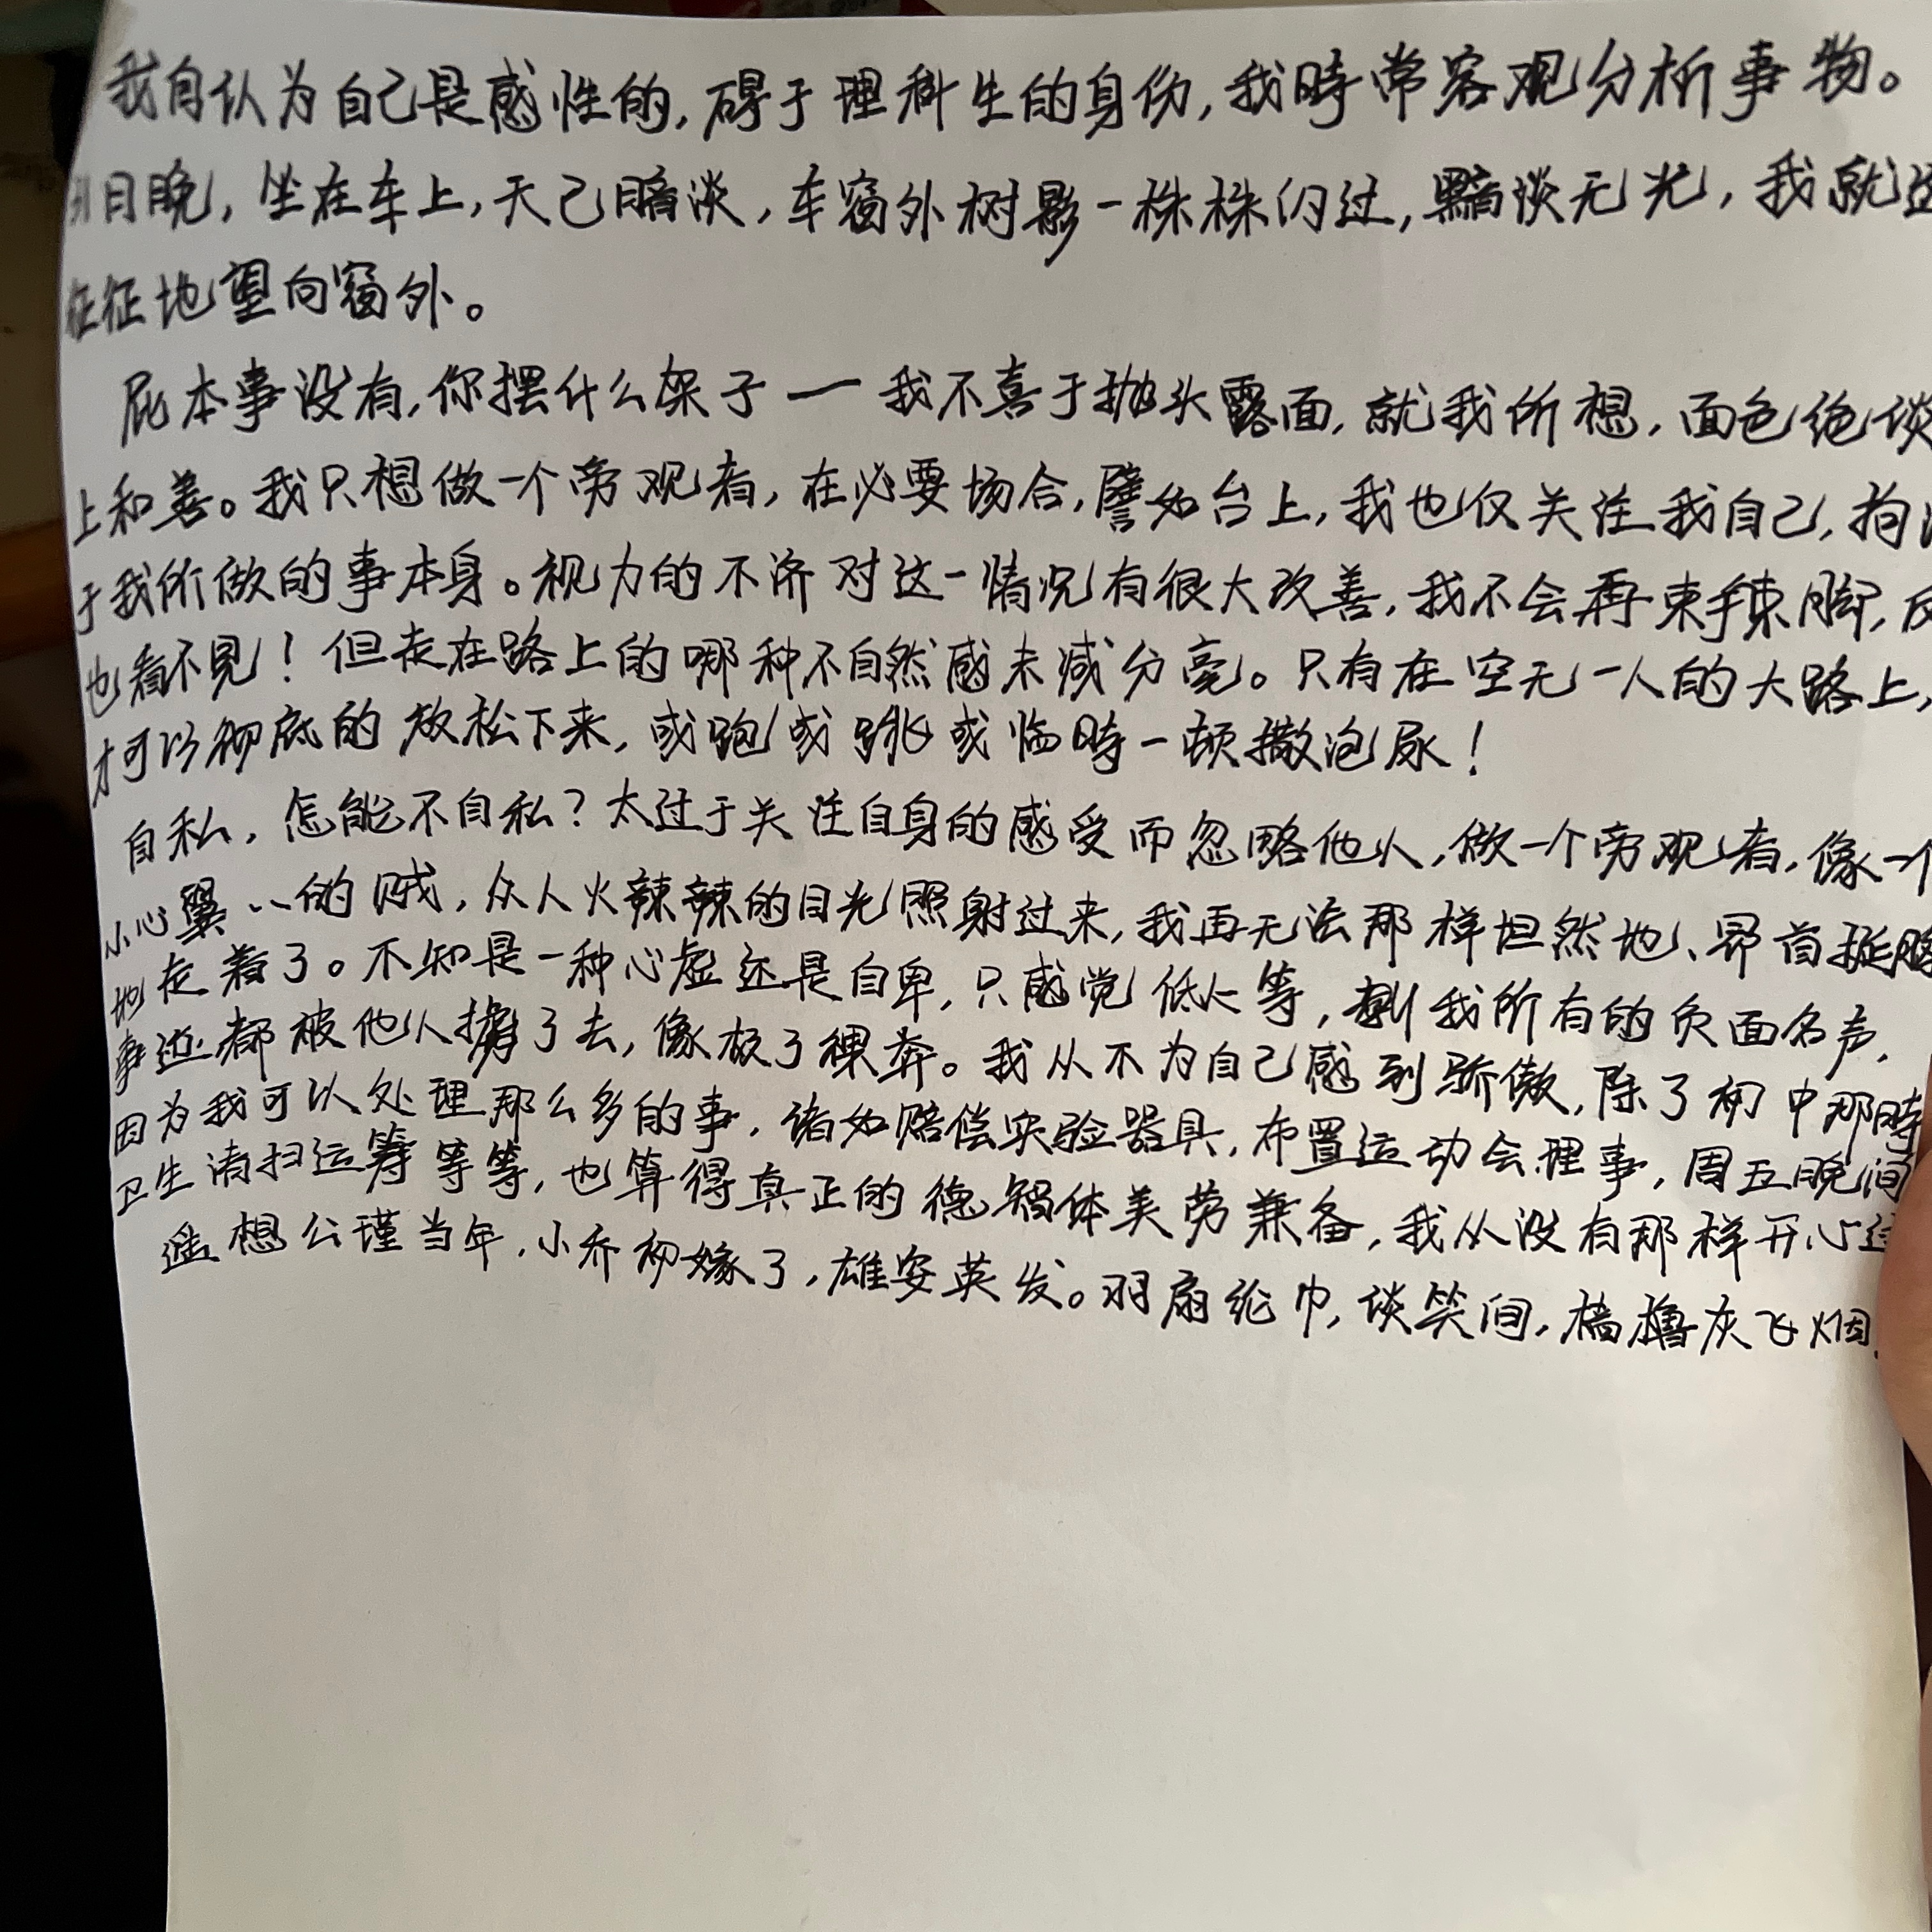 我自认为自己是感性的,碍于理科生的身份,我時常客观分析事物。
日晚,坐在车上,天己暗淡,车窗外树影一株株闪过,黯淡无光,我就这
怔怔地望向窗外。
屁本事没有,你摆什么架子一我不喜于抛头露面,就我所想,面色绝谈
上和善。我只想做一个旁观者,在必要场合,譬如台上,我也仅关注我自己,拘泥
于我所做的事本身。视力的不济对这一情况有很大改善,我不会再束手束脚,反
也看不见!但走在路上的哪种不自然感未减分毫。只有在空无一人的大路上,
才可以彻底的放松下来,或跑或跳或临時一顿撒泡尿!
自私,怎能不自私?太过于关注自身的感受而忽略他人,做一个旁观者,像一个
小心翼〻的贼,众人火辣辣的目光照射过来,我再无法那样坦然地、昂首挺胸
地走着了。不知是一种心虚还是自卑,只感觉低人等,我所有的负面名声,
事迹都被他人掳了去,像极了裸奔。我从不为自己感到骄傲,除了初中那時
因为我可以处理那么多的事,诸如赔偿实验器具,布置运动会理事,周五晚间
卫生清扫运筹等等,也算得真正的德智体美劳兼备,我从没有那样开心过
遥想公瑾当年,小乔初嫁了,雄姿英发。羽扇纶巾,谈笑间,樯橹灰飞烟